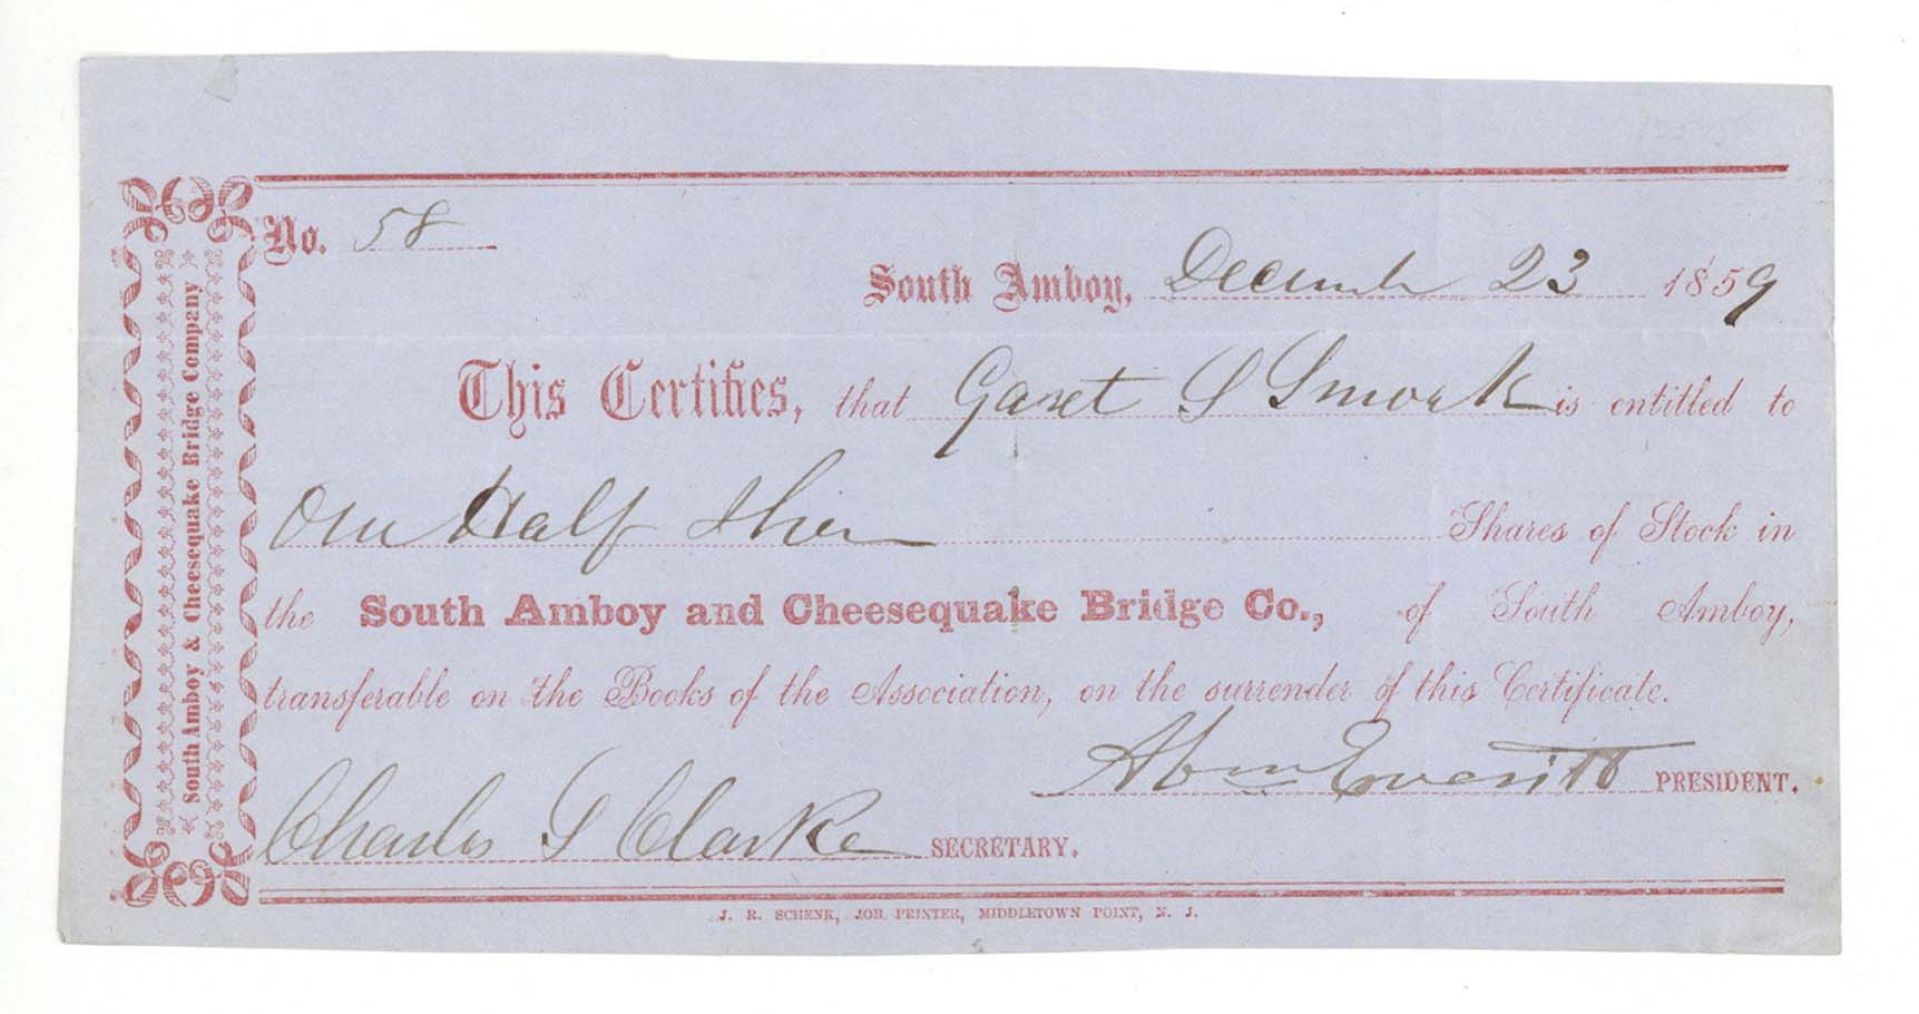 South Amboy & Cheesequake Bridge Company
No. 58
South Amboy, December 23 1859
This Certifies, that Garet S Smock is entitled to
One Half Share Shares of Stock in
the South Amboy and Cheesequake Bridge Co., of South Amboy,
transferable on the Books of the Association, on the surrender of this Certificate.
Abm Everitt PRESIDENT.
Charles S Clarke SECRETARY.
J. R. SCHENK, JOB PRINTER, MIDDLETOWN POINT, N. J.